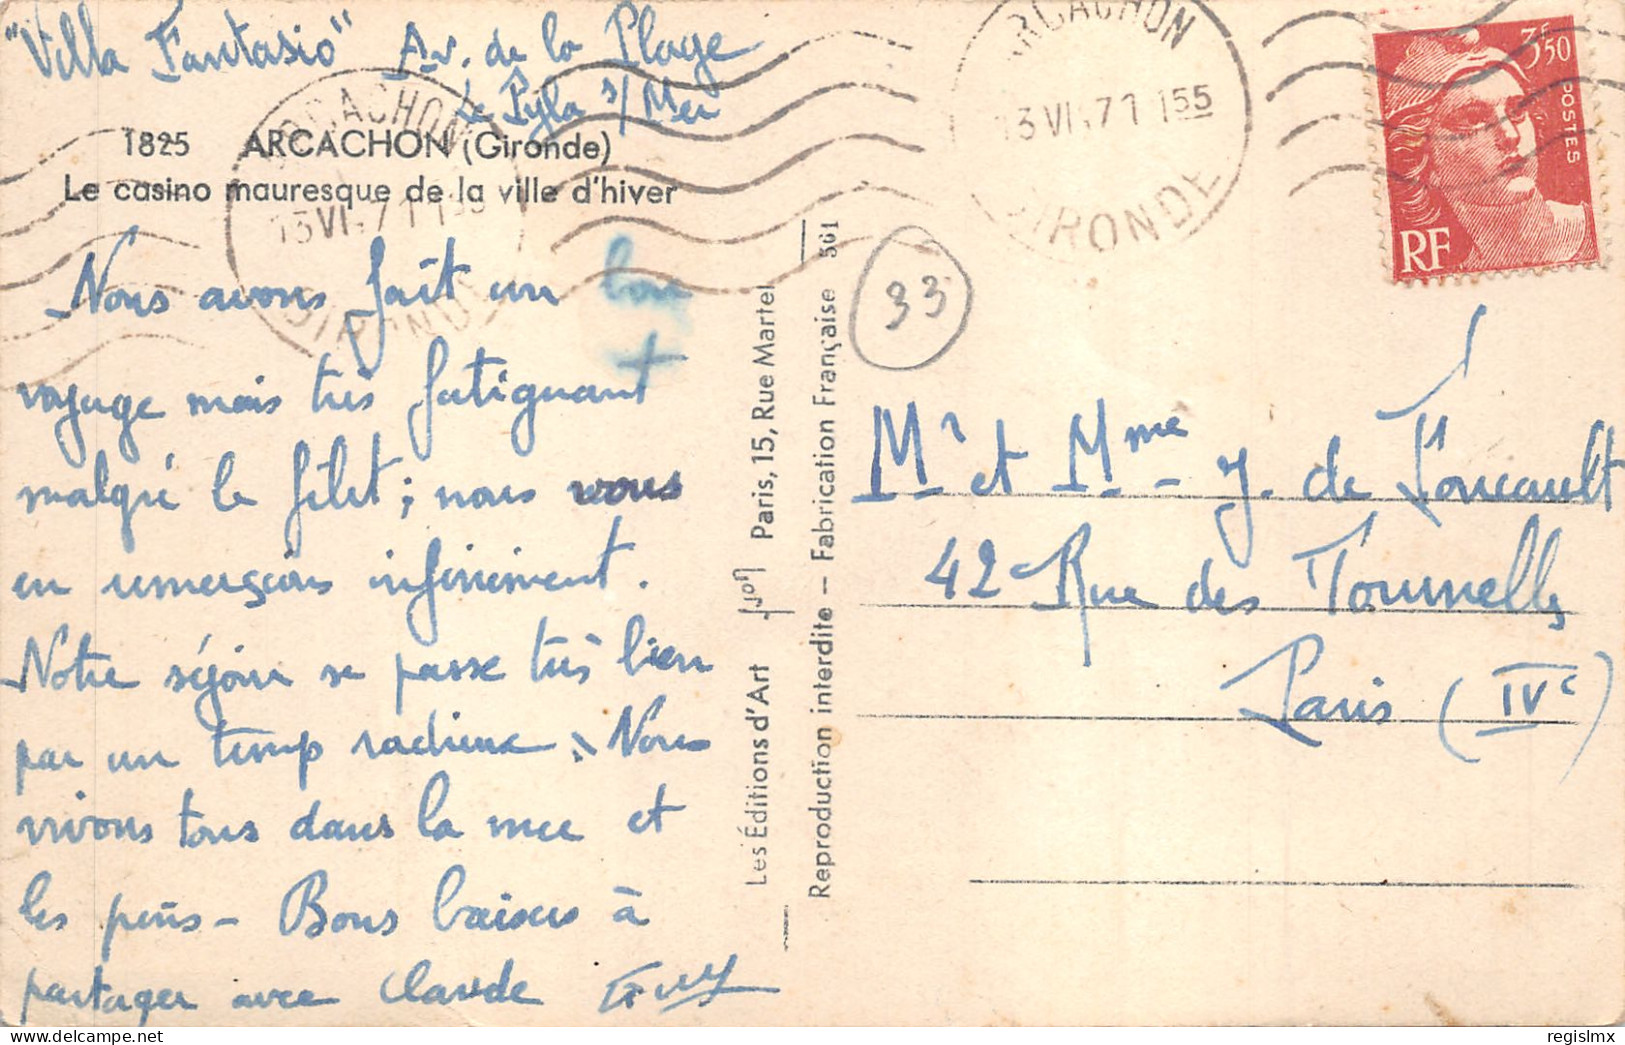 "Villa Fantasio" Av. de la Plage
Le Pyla s/Mer
1825 ARCACHON (Gironde)
Le casino mauresque de la ville d'hiver
Nous avons fait un bon
voyage mais très fatiguant
malgré le filet ; nous vous
en remercions infiniment.
Notre séjour se passe très bien
par un temp radieux. Nous
vivons tous dans la mer et
les pins - Bons baisers à
partager avec Claude Guy
Les Éditions d'Art Yvon Paris, 15, Rue Martel
Reproduction interdite — Fabrication Française 561
ARCACHON
13 VI 71 155
GIRONDE
ARCACHON
13 VI 71 155
GIRONDE
3F50
POSTES
RF
33
Mr et Mme J. de Foucault
42 Rue des Tournelles
Paris (IVe)
regislmx